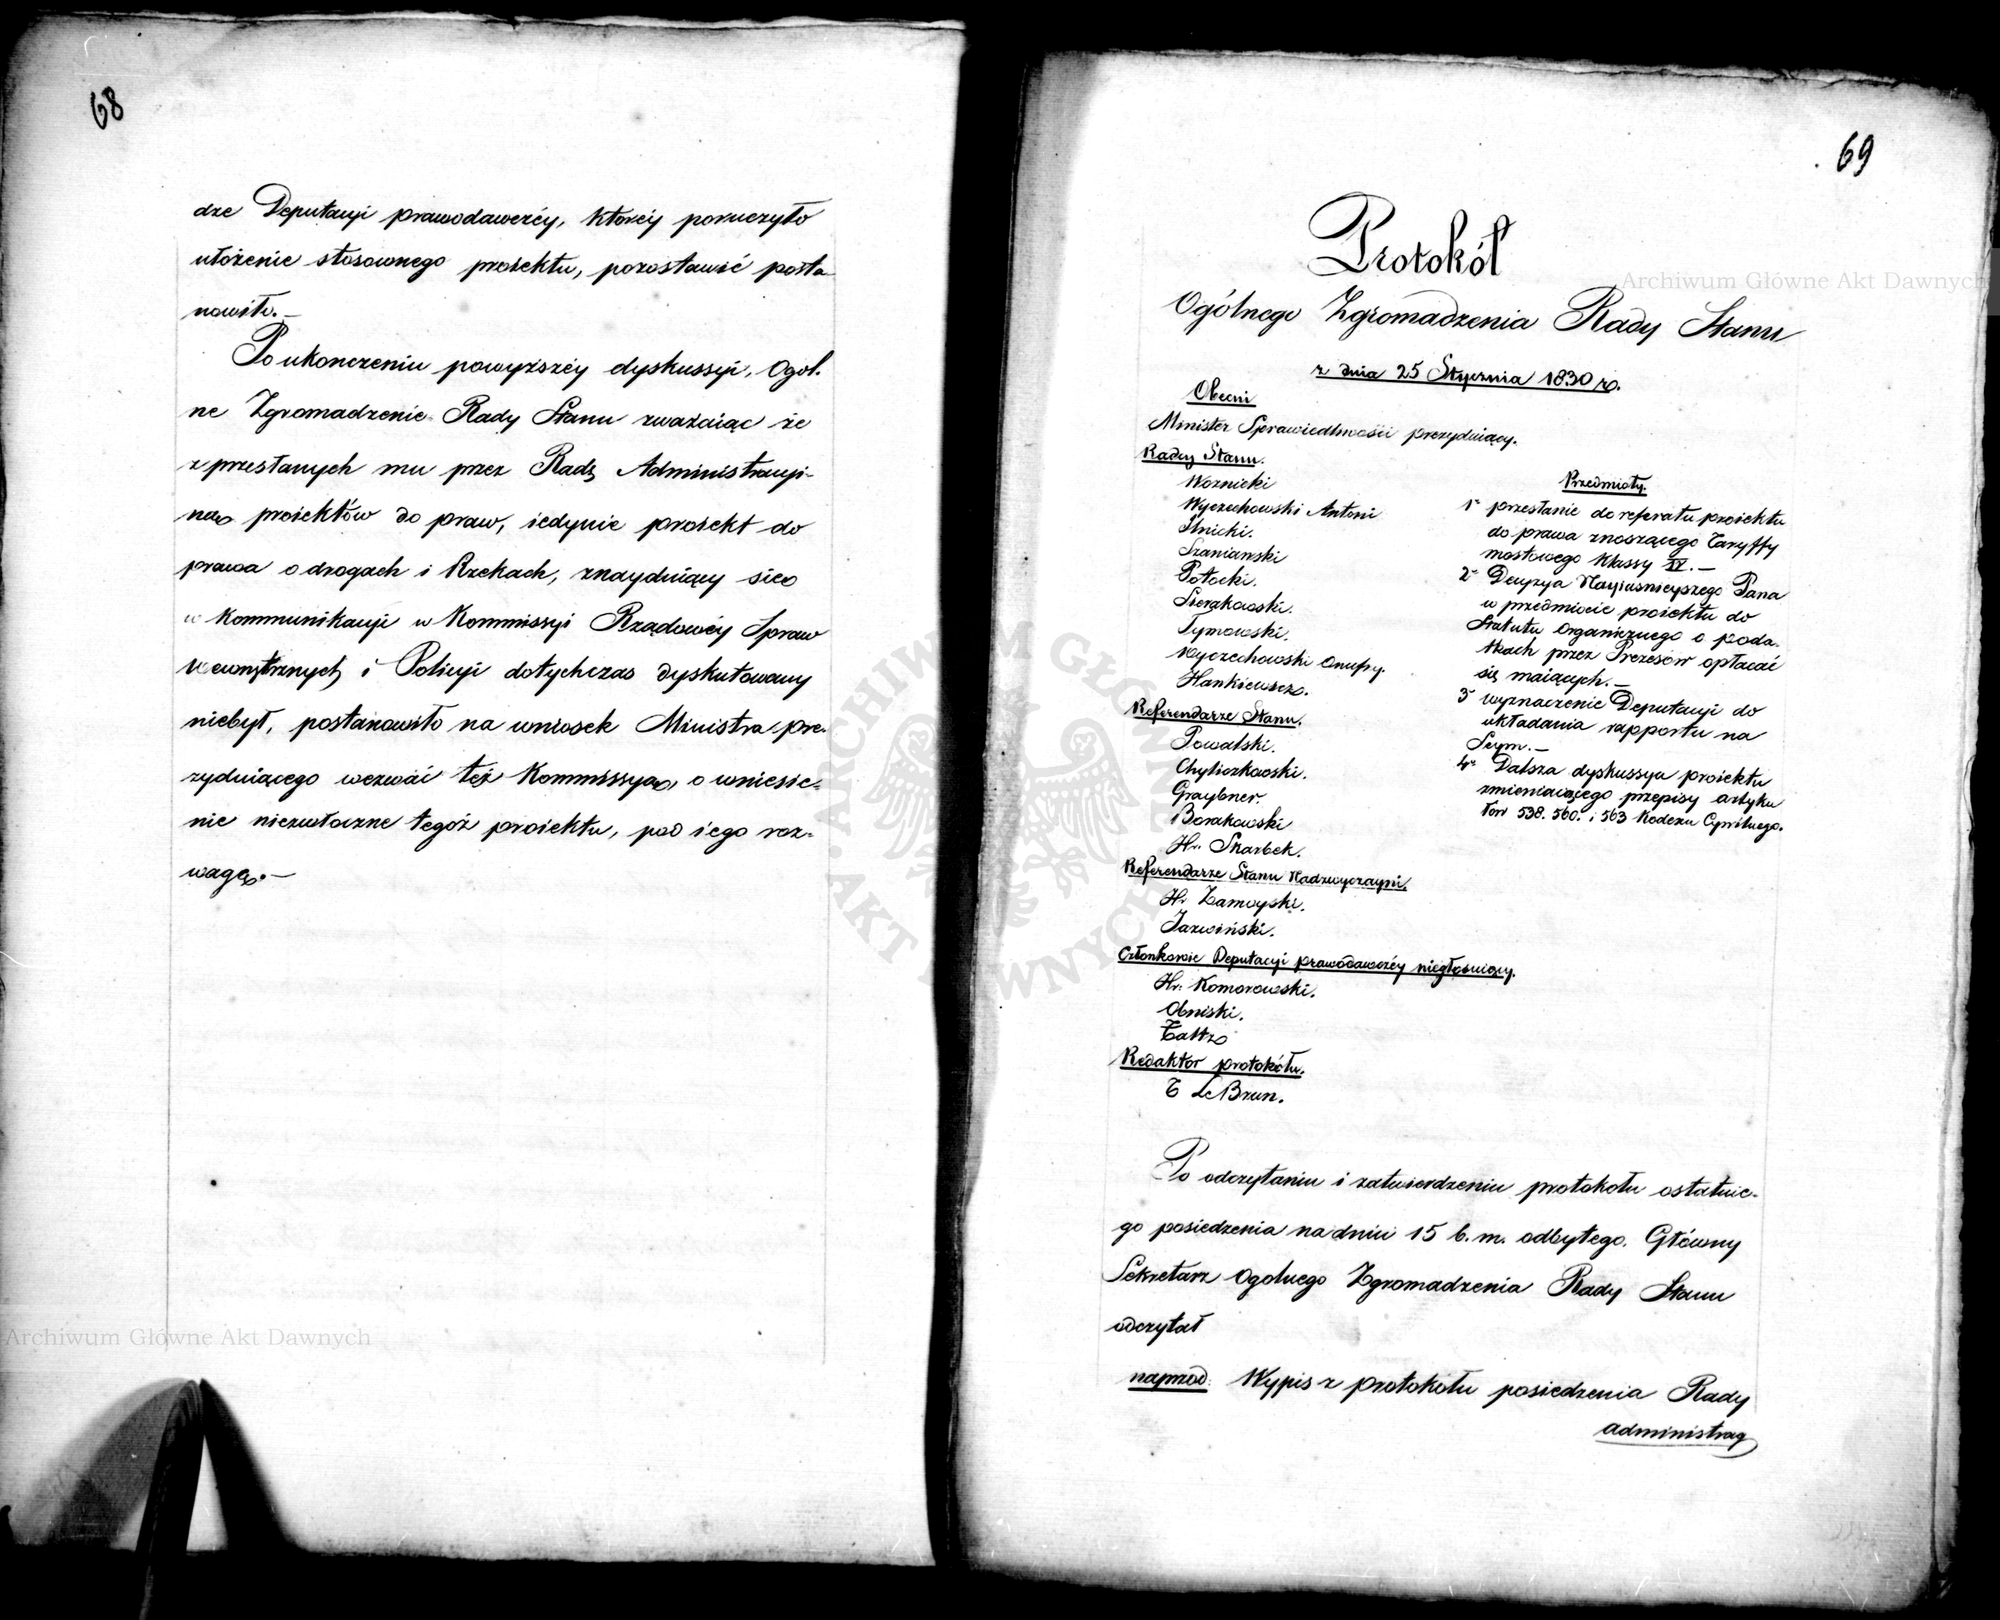 68
dze Deputacyi prawodawczéy, któréy poruczyło
ułożenie stosownego proiektu, pozostawić posta-
nowiło.—
Po ukończeniu powyższéy dyskussyi, Ogól-
ne Zgromadzenie Rady Stanu zważaiąc że
z przesłanych mu przez Radę Administracyi-
ną proiektów do praw, iedynie proiekt do
prawa o drogach i Rzekach, znayduiący się
w Kommunikacyi w Kommissyi Rządowéy Spraw
Wewnętrznych i Policyi dotychczas dyskutowany
niebył, postanowiło na wniosek Ministra pre-
zyduiącego wezwać też Kommissyą, o wniesie-
nie niezwłoczne tegoż proiektu, pod iego roz-
wagę.—
69
Protokół
Ogólnego Zgromadzenia Rady Stanu
z dnia 25 Stycznia 1830 r.
Obecni
Minister Sprawiedliwości prezyduiący.
Radcy Stanu.
Woznicki
Wyczechowski Antoni
Ilnicki.
Szaniawski
Potocki.
Sierakowski.
Tymowski.
Wyczechowski Onufry.
Hankiewicz.
Referendarze Stanu.
Powalski.
Chyliczkowski.
Graybner.
Borakowski
Hr. Skarbek.
Referendarze Stanu Nadzwyczayni.
Hr. Zamoyski.
Jazwiński.
Członkowie Deputacyi prawodawczéy niegłosuiący.
Hr. Komorowski.
Obniski.
Redaktor protokółu.
T LeBrun.
Przedmioty.
1° przesłanie do referatu proiektu
do prawa znoszącego Taryffy
mostowego Klassy IV.—
2° Decyzya Nayiaśnieyszego Pana
w przedmiocie proiektu do
Statutu Organicznego o poda-
tkach przez Prezesów opłacać
się maiących.—
3° wyznaczenie Deputacyi do
układania rapportu na
Seym.—
4° Dalsza dyskussya proiektu
zmieniaiącego przepisy artyku
łów 538. 560. i 563 Kodexu Cywilnego.
Po odczytaniu i zatwierdzeniu protokołu ostatnie-
go posiedzenia na dniu 15 b. m. odbytego. Główny
Sekretarz Ogolnego Zgromadzenia Rady Stanu
odczytał
naprzód: Wypis z protokołu posiedzenia Rady
administracy
Archiwum Główne Akt Dawnych
Archiwum Główne Akt Dawnych
ARCHIWUM GŁÓWNE
AKT DAWNYCH